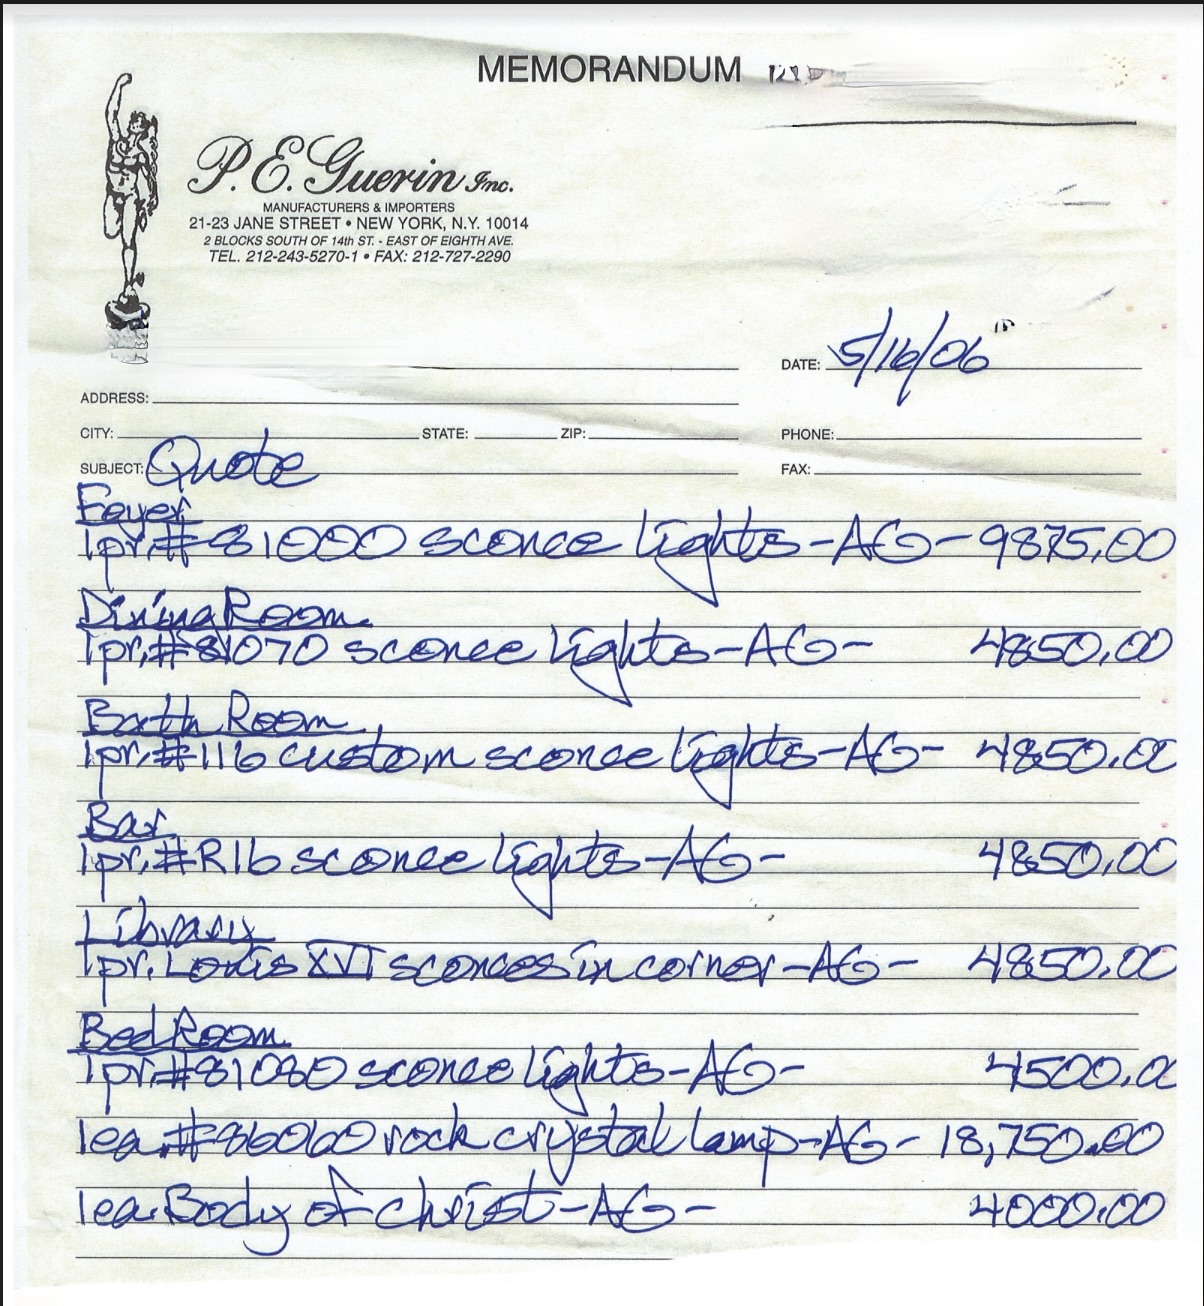 MEMORANDUM
P.E. Guerin Inc.
MANUFACTURERS & IMPORTERS
21-23 JANE STREET • NEW YORK, N.Y. 10014
2 BLOCKS SOUTH OF 14th ST. - EAST OF EIGHTH AVE.
TEL. 212-243-5270-1 • FAX: 212-727-2290
DATE: 5/16/06
ADDRESS:
CITY: STATE: ZIP: PHONE:
SUBJECT: Quote FAX:
Foyer
1pr.#81000 sconce lights-AG-9875.00
Dining Room
1pr.#81070 sconce lights-AG- 4850.00
Bath Room
1pr.#116 custom sconce lights-AG- 4850.00
Bar
1pr.#R16 sconce lights-AG- 4850.00
Library
1pr. Louis XVI sconces in corner-AG- 4850.00
Bed Room
1pr.#81080 sconce lights-AG- 4500.00
1ea.#86060 rock crystal lamp-AG- 18,750.00
1ea. Body of christ-AG- 4000.00